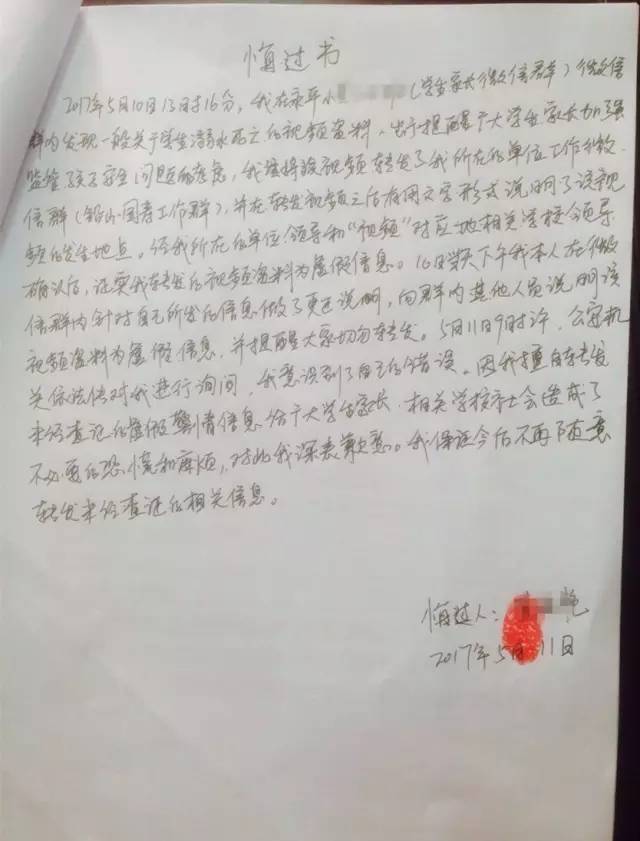 悔过书
2017年5月10日13时16分，我在永平小（学生家长微信群）微信
群内发现一段关于学生溺水死亡的视频资料，出于提醒广大学生家长加强
监管孩子安全问题的考虑，我便将该视频转发了我所在的单位工作微
信群（铅山·国寿工作群），并在转发视频之后有用文字形式说明了该视
频的发生地点。经我所在的单位领导和“视频”对应地相关学校领导
确认后，证实我转发的视频资料为虚假信息。10日当天下午我本人在微
信群内针对自己所发的信息做了更正说明，向群内其他人员说明该
视频资料为虚假信息，并提醒大家切勿转发。5月11日9时许，公安机
关依法传对我进行询问，我意识到了自己的错误。因我擅自转发
未经查证的虚假警情信息给广大学生家长、相关学校和社会造成了
不必要的恐慌和麻烦，对此我深表歉意。我保证今后不再随意
转发未经查证的相关信息。
悔过人：艳
2017年5月11日